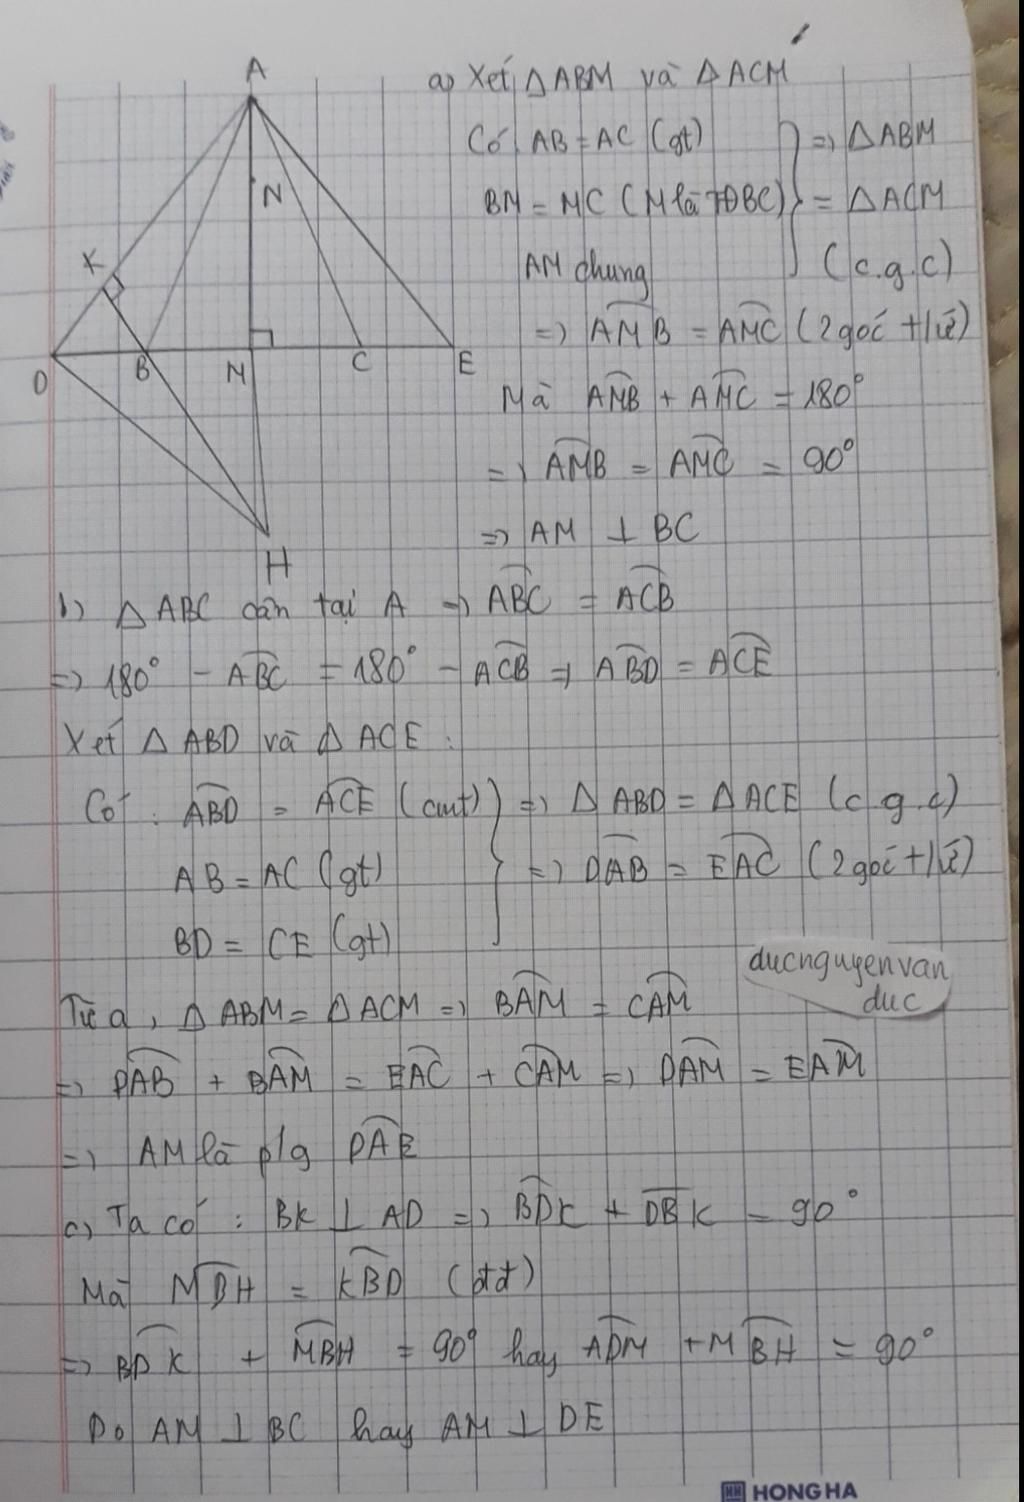 A
N
K
D
B
M
C
E
H
a) Xét ΔABM và ΔACM
Có AB = AC (gt)
BM = MC (M là TĐBC)
AM chung
} => ΔABM
= ΔACM
(c.g.c)
=> AMB = AMC (2 góc t/ứ)
Mà AMB + AMC = 180°
=> AMB = AMC = 90°
=> AM ⊥ BC
b) Δ ABC cân tại A => ABC = ACB
=> 180° - ABC = 180° - ACB => ABD = ACE
Xét Δ ABD và Δ ACE :
Có : ABD = ACE (cmt) } => Δ ABD = Δ ACE (c.g.c)
AB = AC (gt) => DAB = EAC (2 góc t/ứ)
BD = CE (gt)
ducnguyenvan
duc
Từ a, Δ ABM = Δ ACM => BAM = CAM
=> DAB + BAM = EAC + CAM => DAM = EAM
=> AM là p/g DAE
c) Ta có : BK ⊥ AD => BDK + DBK = 90°
Mà MBH = KBD (đđ)
=> BDK + MBH = 90° hay ADM + MBH = 90°
Do AM ⊥ BC hay AM ⊥ DE
HH HONG HA